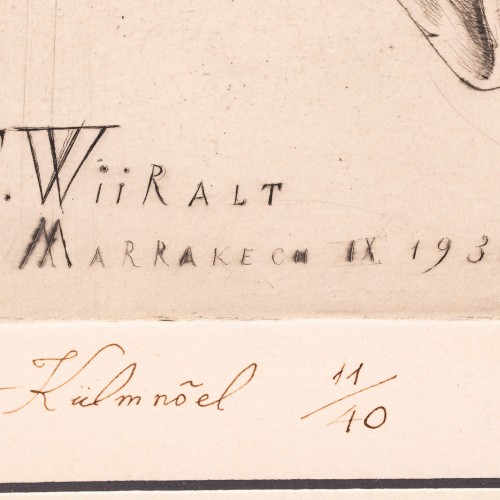 . WiiRALT
MARRAKECH IX 193
Külmnõel 11/40